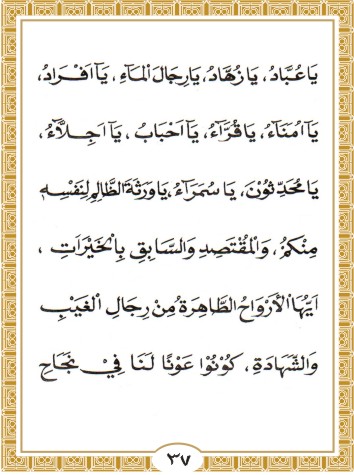 يَا عُبَّادُ، يَا زُهَّادُ، يَارِجَالَ الْمَآءِ، يَآ اَفْرَادُ،
يَآ اُمَنَاءُ، يَا قُرَّاءُ، يَآ اَحْبَابُ، يَآ اَجِلَّآءُ،
يَا مُحَدِّثُوْنَ، يَا سُمَرَآءُ، يَاوَرَثَةَ الظَّالِمِ لِنَفْسِهِ
مِنْكُمْ، وَالْمُقْتَصِدِ وَالسَّابِقِ بِالْخَيْرَاتِ،
اَيَّتُهَا الْأَرْوَاحُ الطَّاهِرَةُ مِنْ رِجَالِ الْغَيْبِ
وَالشَّهَادَةِ، كُوْنُوْا عَوْنًا لَنَا فِيْ نَجَاحِ
٣٧